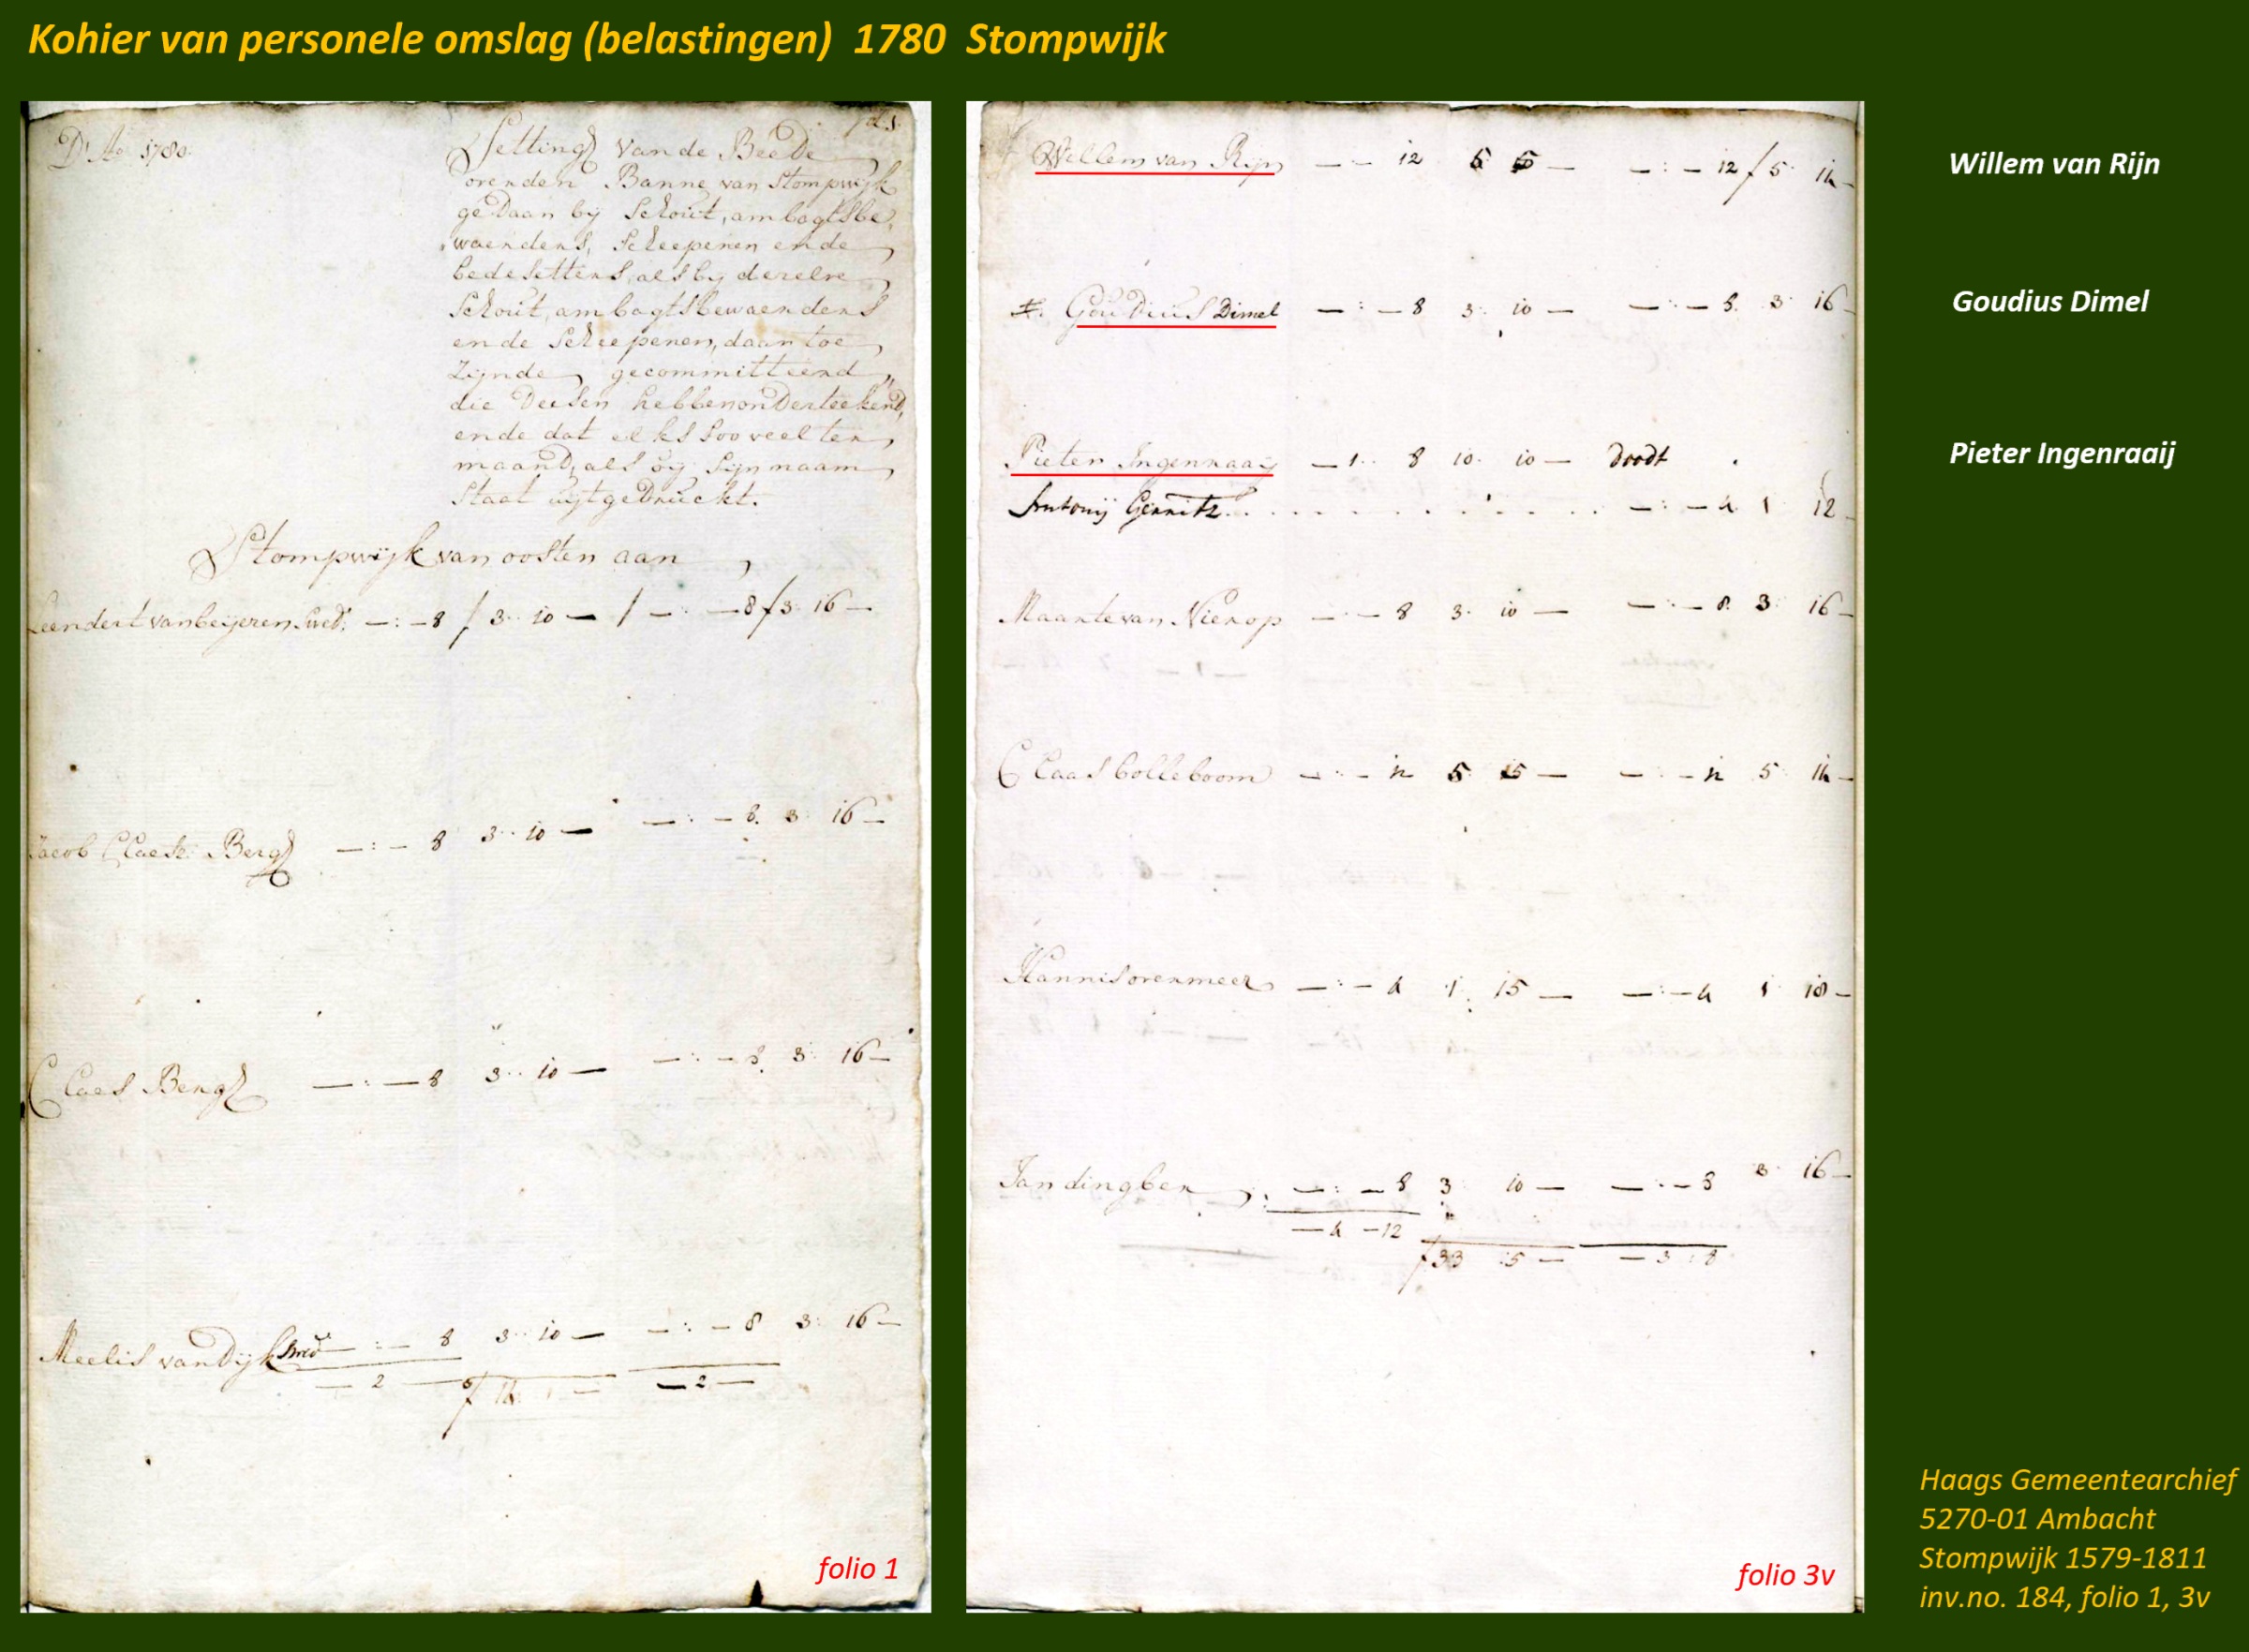 Kohier van personele omslag (belastingen) 1780 Stompwijk
Ao 1780.
Setting Van de Beede
over den Banne van Stompwijk
gedaan bij Schout, ambagtsbe,
waerders, Scheepenen ende
bedesetters, als bij deselve
Schout, ambagtsbewaerders
ende Scheepenen, daar toe
Zijnde gecommitteerd,
die Deesen hebben onderteekend,
ende dat elks soo veel ter
maand, als bij Sijn naam
Staat uijtgedruckt.
Stompwijk van oosten aan
Leendert van beijeren —:—8 / 3:10— / —:—8 ƒ3:16—
Jacob Claesz: Berg —:—8 3:10— —:—8. 3:16—
Claes Berg —:—8 3:10— —:—8. 3:16—
Meelis van Dijk —:—8 3:10— —:—8 3:16—
—2— ƒ14 —2—
folio 1
Willem van Rijn —— 12 5 5— —:—12 ƒ5: 14—
Goudius Dimel —:—8 3: 10— —:—8. 3: 16—
Pieter Ingenraaij —1:8 10: 10— doodt
Antonij Gerritz. . . . . . . . . . —:—4. 1 12—
Maarte van Nierop —:—8 3: 10— —:—8. 3: 16—
Claas bolleboom —:—12 5: 5— —:—12 5: 14—
Hannis overmeer —:—4 1: 15— —:—4 1: 18—
Jan dingber —:—8 3: 10— —:—8 3: 16—
—4—12
ƒ33:5— —3:8
folio 3v
Willem van Rijn
Goudius Dimel
Pieter Ingenraaij
Haags Gemeentearchief
5270-01 Ambacht
Stompwijk 1579-1811
inv.no. 184, folio 1, 3v